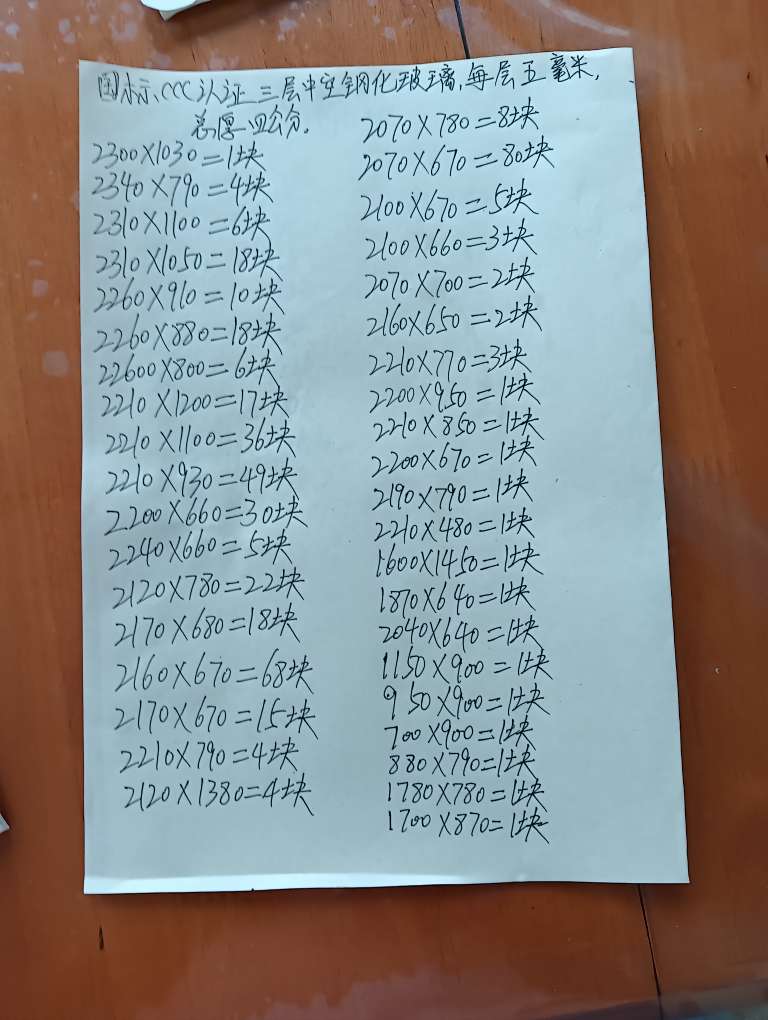 国标、CCC认证三层中空钢化玻璃,每层五毫米,
总厚四公分.
2300×1030=1块
2340×790=4块
2310×1100=6块
2310×1050=18块
2260×910=10块
2260×880=18块
22600×800=6块
2210×1200=17块
2210×1100=36块
2210×930=49块
2200×660=30块
2240×660=5块
2120×780=22块
2170×680=18块
2160×670=68块
2170×670=15块
2210×790=4块
2120×1380=4块
2070×780=8块
2070×670=80块
2100×670=5块
2100×660=3块
2070×700=2块
2160×650=2块
2210×770=3块
2200×950=1块
2210×850=1块
2200×670=1块
2190×790=1块
2210×480=1块
1600×1450=1块
1870×640=1块
2040×640=1块
1150×900=1块
950×900=1块
700×900=1块
880×790=1块
1780×780=1块
1700×870=1块